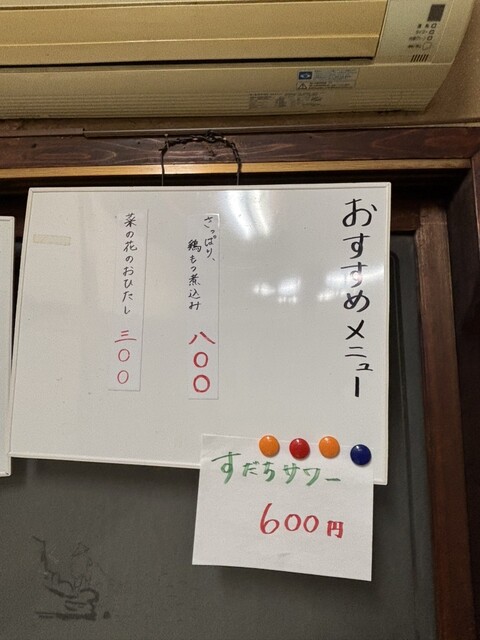 おすすめメニュー
さっぱり、
鶏もつ煮込み 八〇〇
菜の花のおひたし 三〇〇
すだちサワー
600円